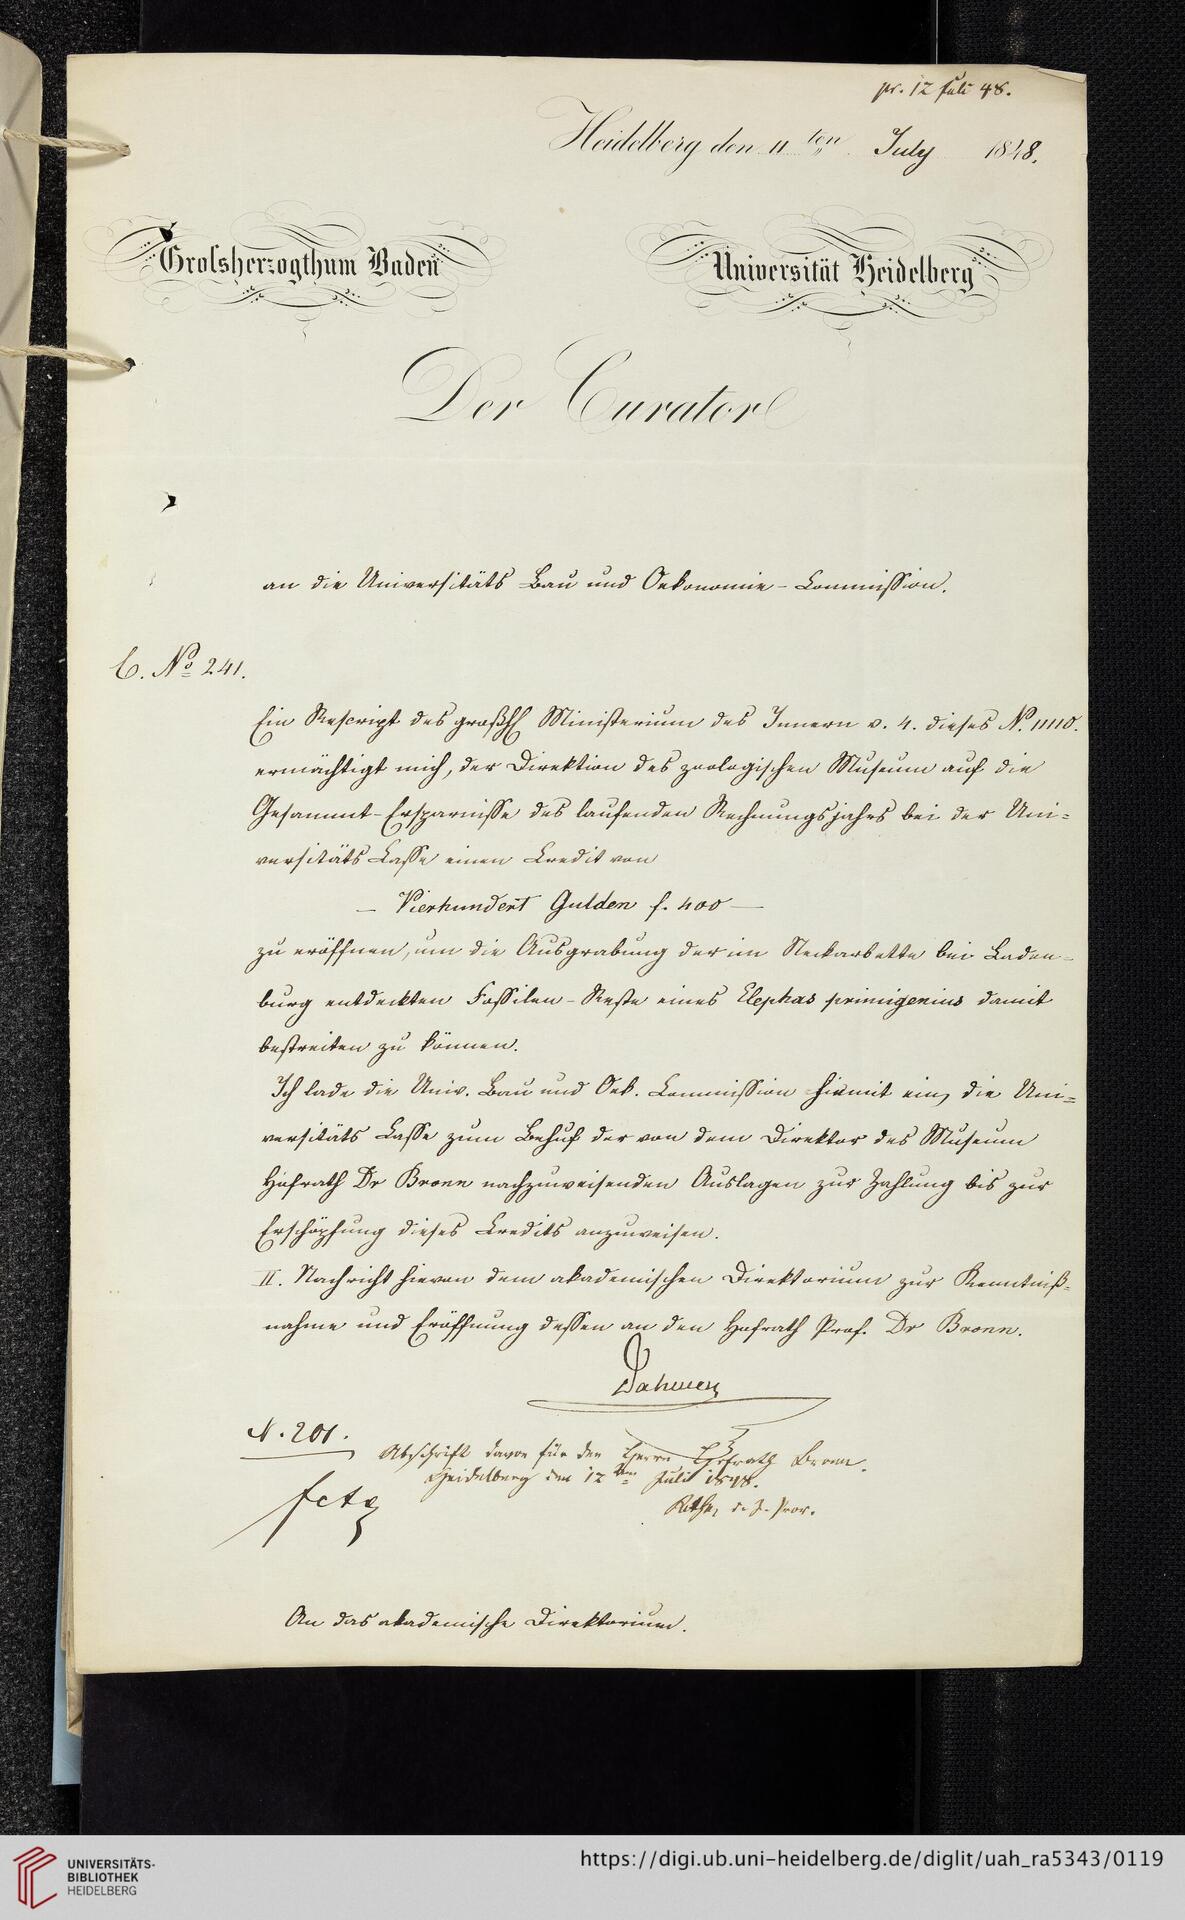 pr. 12 Juli 48.
Heidelberg den 11ten July 1848.
Grolsherzogthum Baden
Universität Heidelberg
Der Curator
an die Universitäts Bau und Oekonomie-Commission.
C. No 241.
Ein Rescript des großhl Ministerium des Innern v. 4. dieses N. 11110.
ermächtigt mich, der Direktion des zoologischen Museum auf die
Gesammt-Ersparnisse des laufenden Rechnungsjahrs bei der Uni=
versitäts Casse einen Credit von
— Vierhundert Gulden f. 400 —
zu eröffnen, um die Ausgrabung der im Neckarbette bei Laden=
burg entdeckten Fossilen-Reste eines Elephas primigenius damit
bestreiten zu können.
Ich lade die Univ. Bau und Oek. Commission hiemit ein, die Uni=
versitäts Casse zum Behuf der von dem Direktor des Museum
Hofrath Dr Bronn nachzuweisenden Auslagen zur Zahlung bis zur
Erschöpfung dieses Credits anzuweisen.
II. Nachricht hievon dem akademischen Direktorium zur Kenntniß=
nahme und Eröffnung dessen an den Hofrath Prof. Dr Bronn.
Dahmen
N. 201.
Abschrift davon für den Herrn Hofrath Bronn.
Heidelberg den 12ten Juli 1848.
Rothe, d. Z. Pror.
An das akademische Direktorium.
UNIVERSITÄTS-
BIBLIOTHEK
HEIDELBERG
https://digi.ub.uni-heidelberg.de/diglit/uah_ra5343/0119